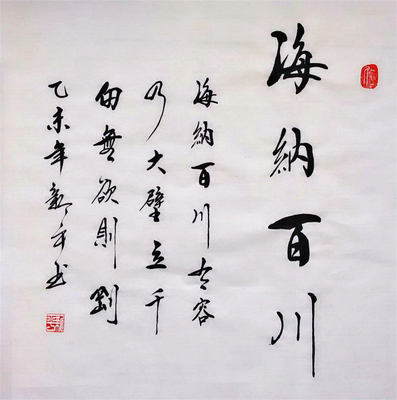 海納百川
海納百川有容
乃大壁立千
仞無欲則剛
乙未年書